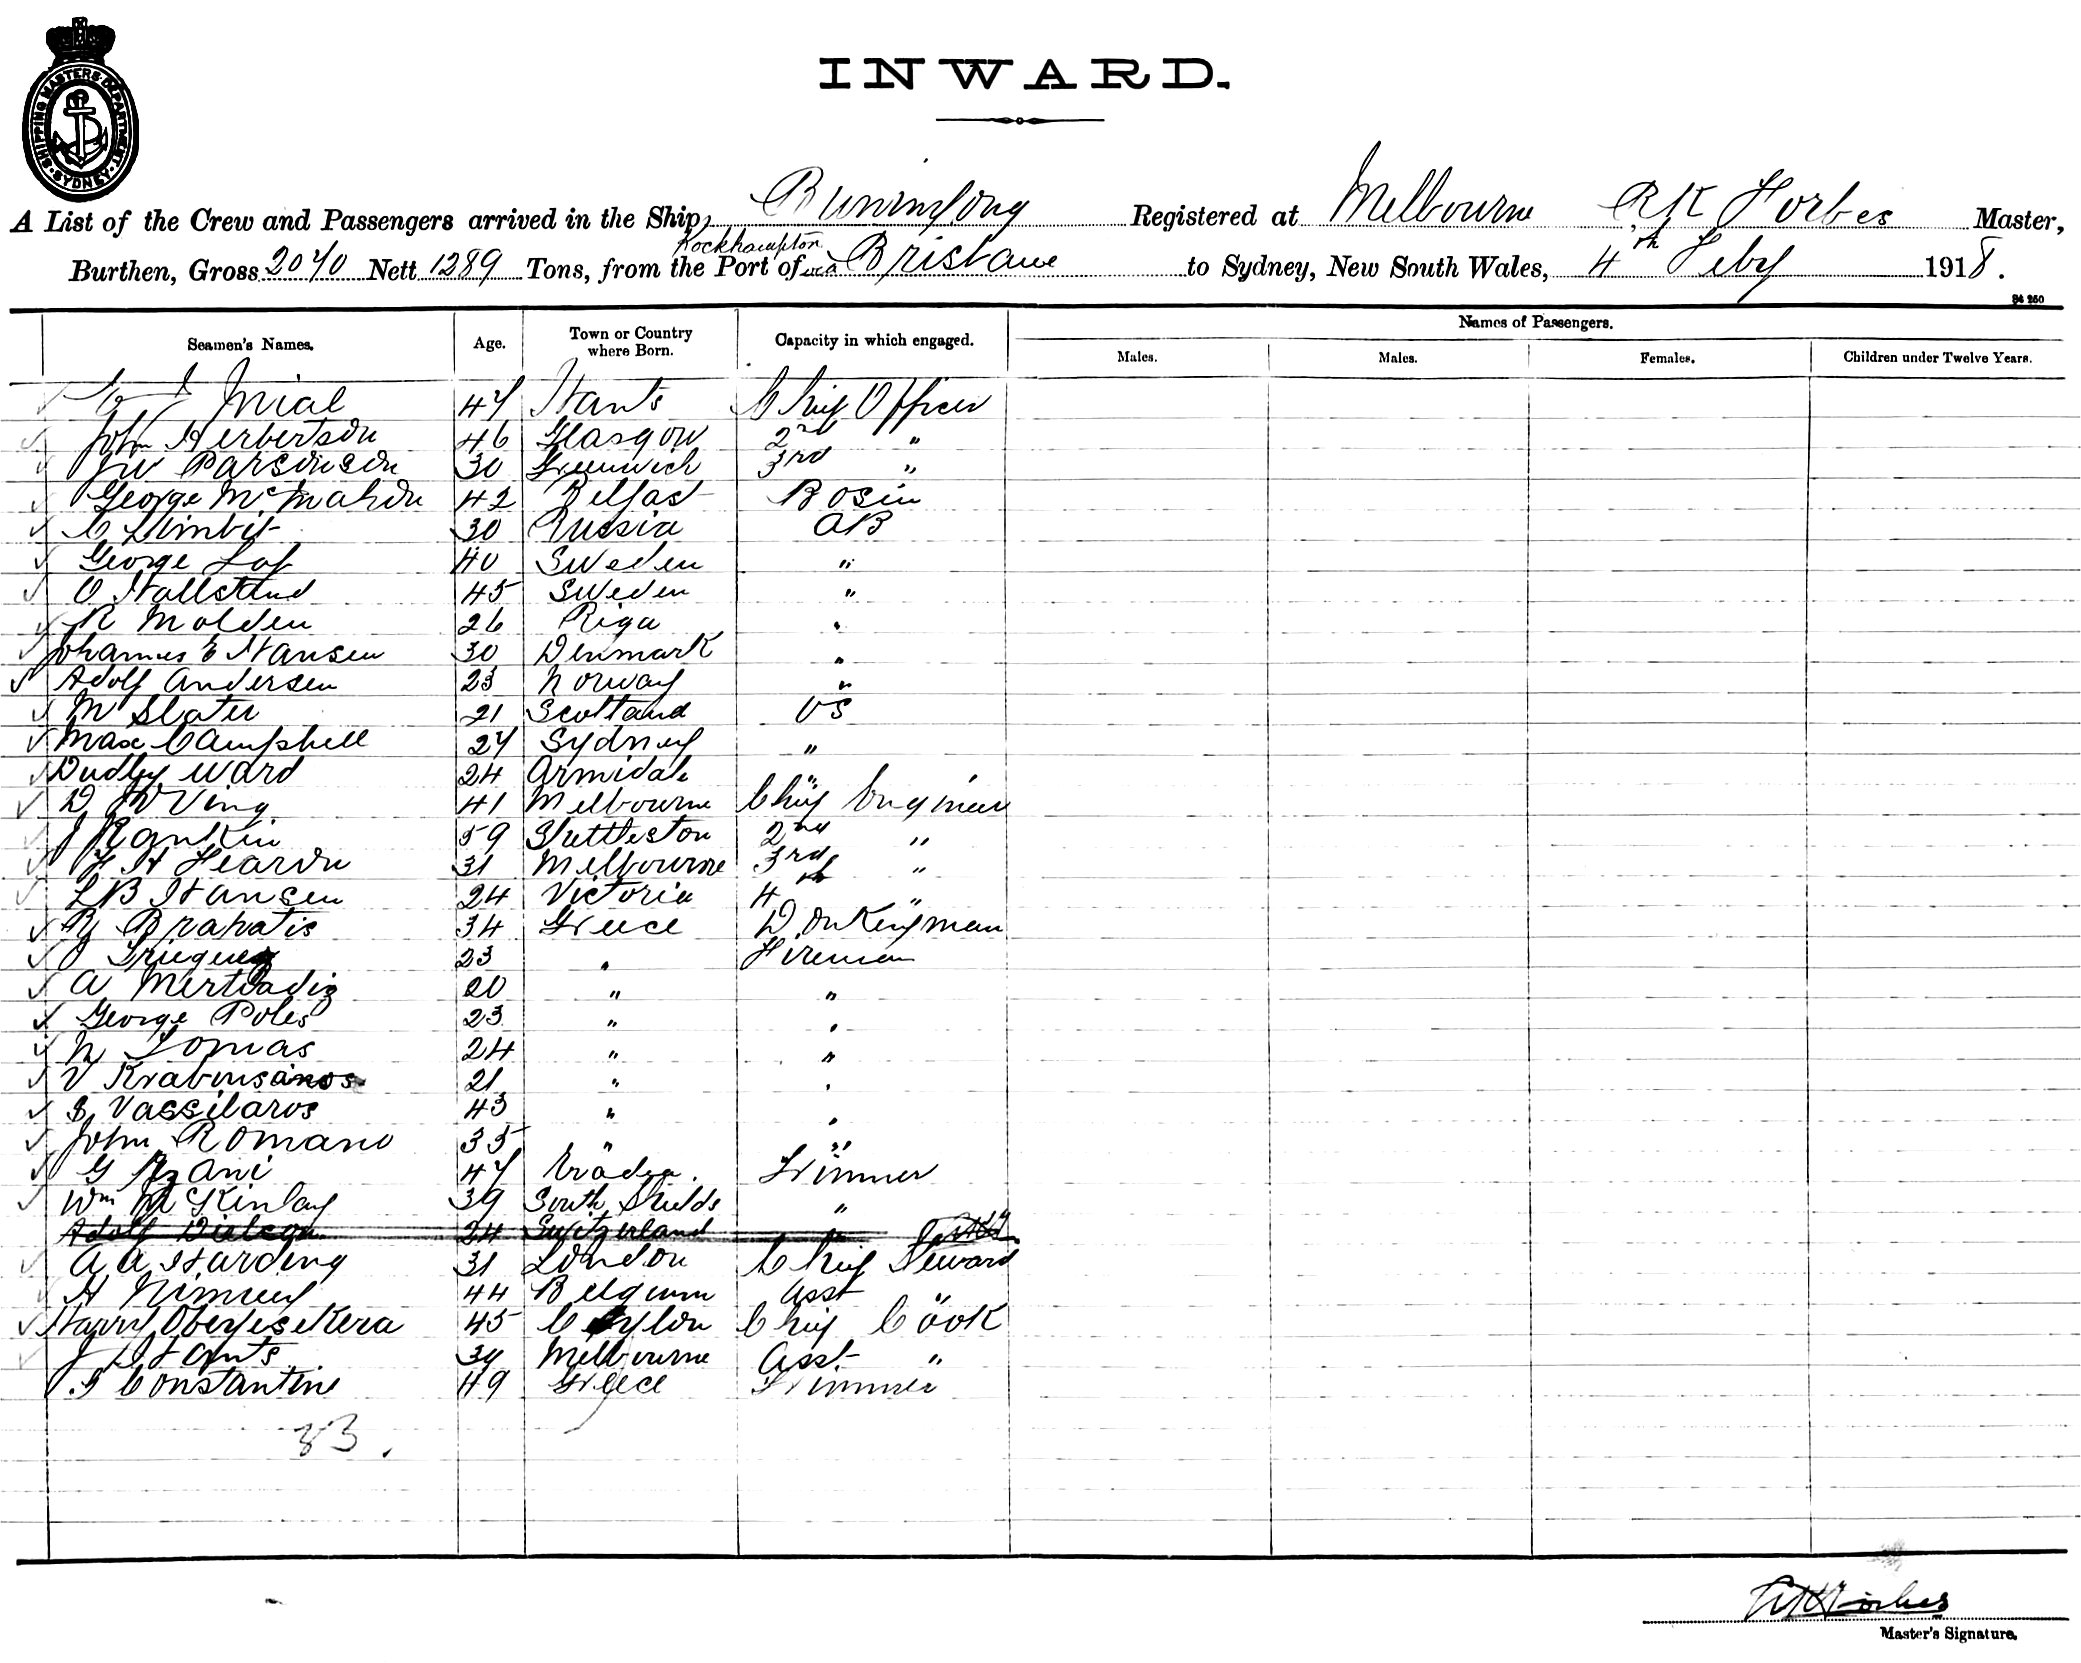 SHIPPING MASTERS DEPARTMENT SYDNEY
INWARD.
A List of the Crew and Passengers arrived in the Ship, Buninyong Registered at Melbourne RK Forbes Master,
Burthen, Gross 2070 Nett 1289 Tons, from the Port of Rockhampton via Brisbane to Sydney, New South Wales, 4th Feby 1918.
84 250
Seamen's Names. Age. Town or Country where Born. Capacity in which engaged. Names of Passengers.
Males. Males. Females. Children under Twelve Years.
47 Hants Chief Officer
John Herbertson 46 Glasgow 2nd "
JW Parsonson 30 Greenwich 3rd "
George McMahon 42 Belfast Bosin
C Limbit 30 Russia AB
George 40 Sweden "
O Hallstend 45 Sweden "
R Molden 26 Riga "
Johannes E Hansen 30 Denmark "
Adolf Andersen 23 Norway "
M Slater 21 Scotland OS
Max Campbell 27 Sydney "
Dudley Ward 24 Armidale "
D W Ving 41 Melbourne Chief Engineer
J Rankin 59 Shettleston 2nd "
F H Hearn 31 Melbourne 3rd "
LB Hansen 24 Victoria 4th "
Brahatis 34 Greece Donkeyman
23 " Fireman
A 20 " "
George Poles 23 " "
N Tomas 24 " "
V 21 " "
S Vassilaros 43 " "
John Romano 35 " "
G Azani 47 Trimmer
Wm McKinlay 39 South Shields "
Adolf 24 Switzerland "
A A Harding 31 London Chief Steward
H 44 Belgium Asst "
Harry Obeyesekera 45 Ceylon Chief Cook
J 39 Melbourne Asst "
G Constantine 49 Greece Trimmer
33.
RK Forbes
Master's Signature.